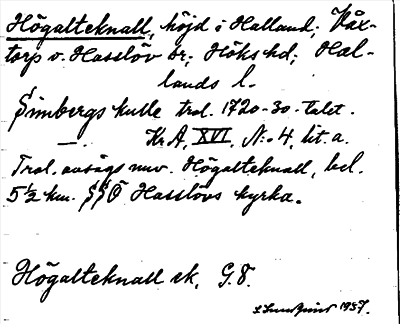 Högalteknall, höjd i Halland; Växtorp
torp v. Hasslöv sn; Höks hd; Hal-
lands l.
Simbergs kulle trol. 1720-30-talet.
—. Kr A, XVI, N:o 4, lit. a.
Trol. avsågs nuv. Högalteknall, bel.
5½ km. SSÖ Hasslövs kyrka.
Högalteknall ek, G.V.
1937.